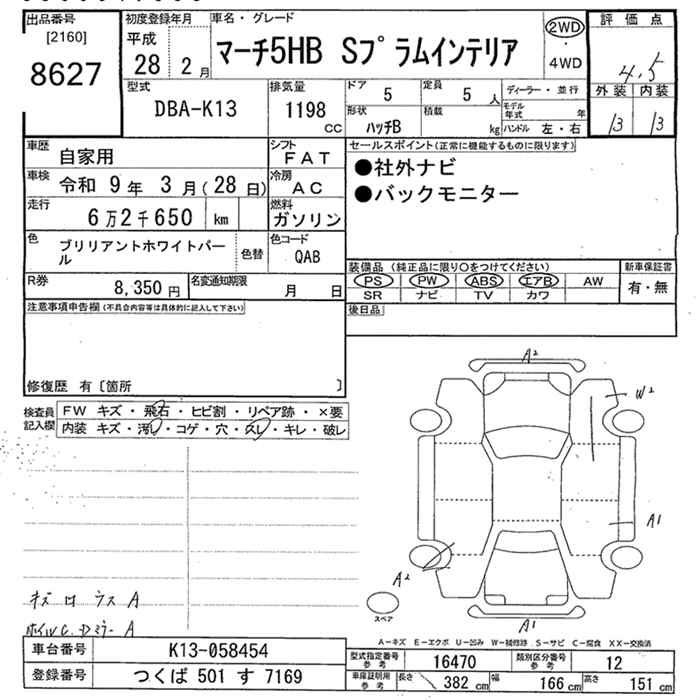 出品番号
[2160]
8627
初度登録年月
平成
28 2 月
車名・グレード
マーチ5HB Sプラムインテリア
2WD
・
4WD
評 価 点
4.5
外装 内装
13 13
型式
DBA-K13
排気量
1198
CC
ドア
5
定員
5 人
形状
ハッチB
積載
kg
ディーラー・並行
モデル年式 年
ハンドル 左・右
車歴
自家用
シフト
FAT
車検
令和 9 年 3 月 (28 日)
冷房
AC
走行
6 万 2 千 650 km
燃料
ガソリン
色
ブリリアントホワイトパール
色替
色コード
QAB
R券
8,350 円
名変通知期限
月 日
セールスポイント(正常に機能するものに限ります)
●社外ナビ
●バックモニター
装備品 (純正品に限り○をつけてください)
PS PW ABS エアB AW
SR ナビ TV カワ
新車保証書
有・無
後日品
注意事項申告欄(不具合内容等は具体的に記入して下さい)
修復歴 有〔箇所 〕
検査員記入欄
FW キズ・飛石・ヒビ割・リペア跡・×要
内装 キズ・汚れ・コゲ・穴・スレ・キレ・破レ
A2
W2
A1
A2
スペア
A1
A-キズ E-エクボ U-凹み W-補修跡 S-サビ C-腐食 XX-交換済
車台番号
K13-058454
登録番号
つくば 501 す 7169
型式指定番号
参考
16470
類別区分番号
参考
12
車庫証明用
参考
長さ 382 cm
幅 166 cm
高さ 151 cm